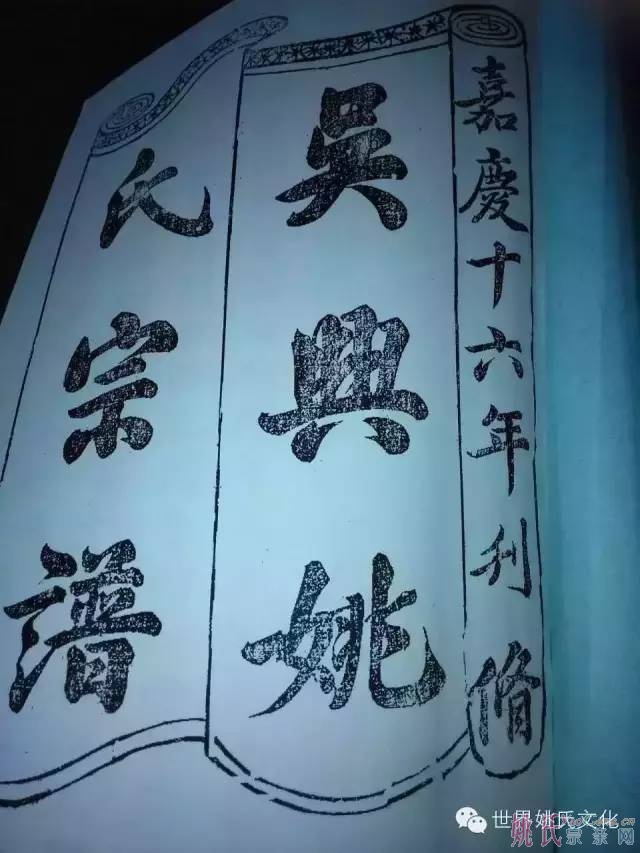 嘉慶十六年刋脩
吳興姚
氏宗譜
世界姚氏文化
姚氏宗亲网